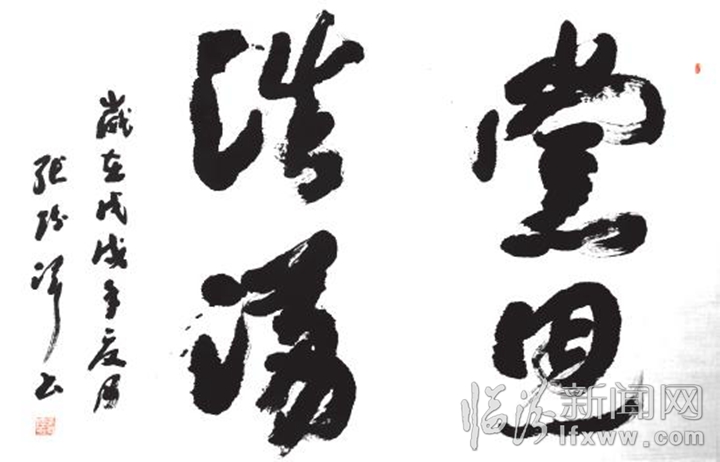 党恩
浩荡
歲在戊戌年夏月
张 书
临汾新闻网
lfxww.com